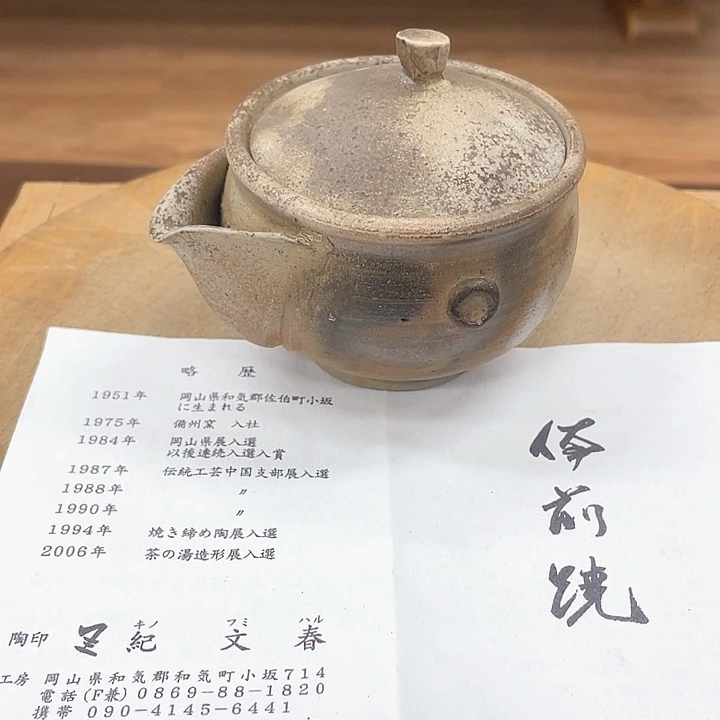 略 歴
1951年 岡山県和気郡佐伯町小坂
に生まれる
1975年 備州窯 入社
1984年 岡山県展入選
以後連続入選入賞
1987年 伝統工芸中国支部展入選
1988年 〃
1990年 〃
1994年 焼き締め陶展入選
2006年 茶の湯造形展入選
キノ フミ ハル
陶印 紀 文 春
工房 岡山県和気郡和気町小坂714
電話(F兼) 0869-88-1820
携帯 090-4145-6441
備前焼